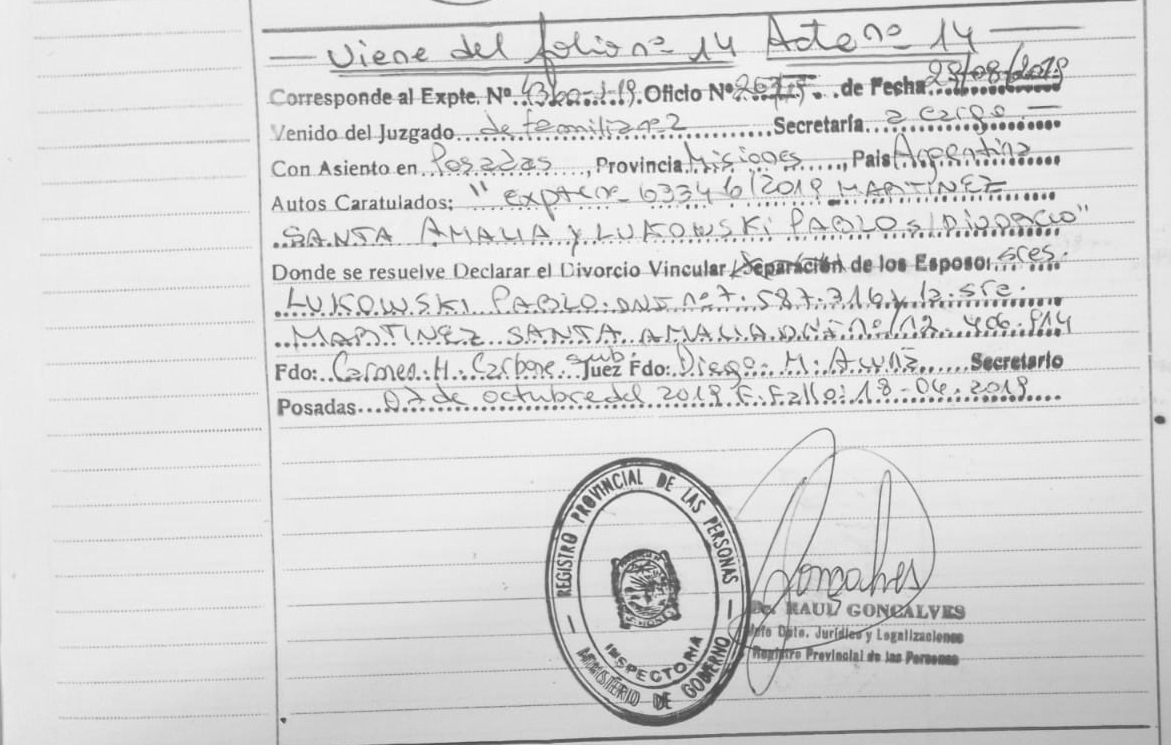 — Viene del folio nº 14 Acta nº 14 —
Corresponde al Expte. Nº Oficio Nº de Fecha 29/08/2019
Venido del Juzgado de familia nº 2 Secretaría a cargo —
Con Asiento en Posadas, Provincia Misiones, Pais Argentina
Autos Caratulados: "expte nº 63346/2019 MARTINEZ
SANTA AMALIA y LUKOWSKI PABLO s/ DIVORCIO"
Donde se resuelve Declarar el Divorcio Vincular / Separación de los Esposos sres.
LUKOWSKI PABLO DNI nº 7.587.316 y la sra.
MARTINEZ SANTA AMALIA D.N.I nº 12.406.914
Fdo: Carmen H. Carbone Juez Fdo: Diego M. Secretario
Posadas 07 de octubre del 2019 F. Fallo: 18-06-2019
REGISTRO PROVINCIAL DE LAS PERSONAS
INSPECTORIA
MINISTERIO DE GOBIERNO
Dr. RAUL GONCALVES
Jefe Dpto. Jurídico y Legalizaciones
Registro Provincial de las Personas